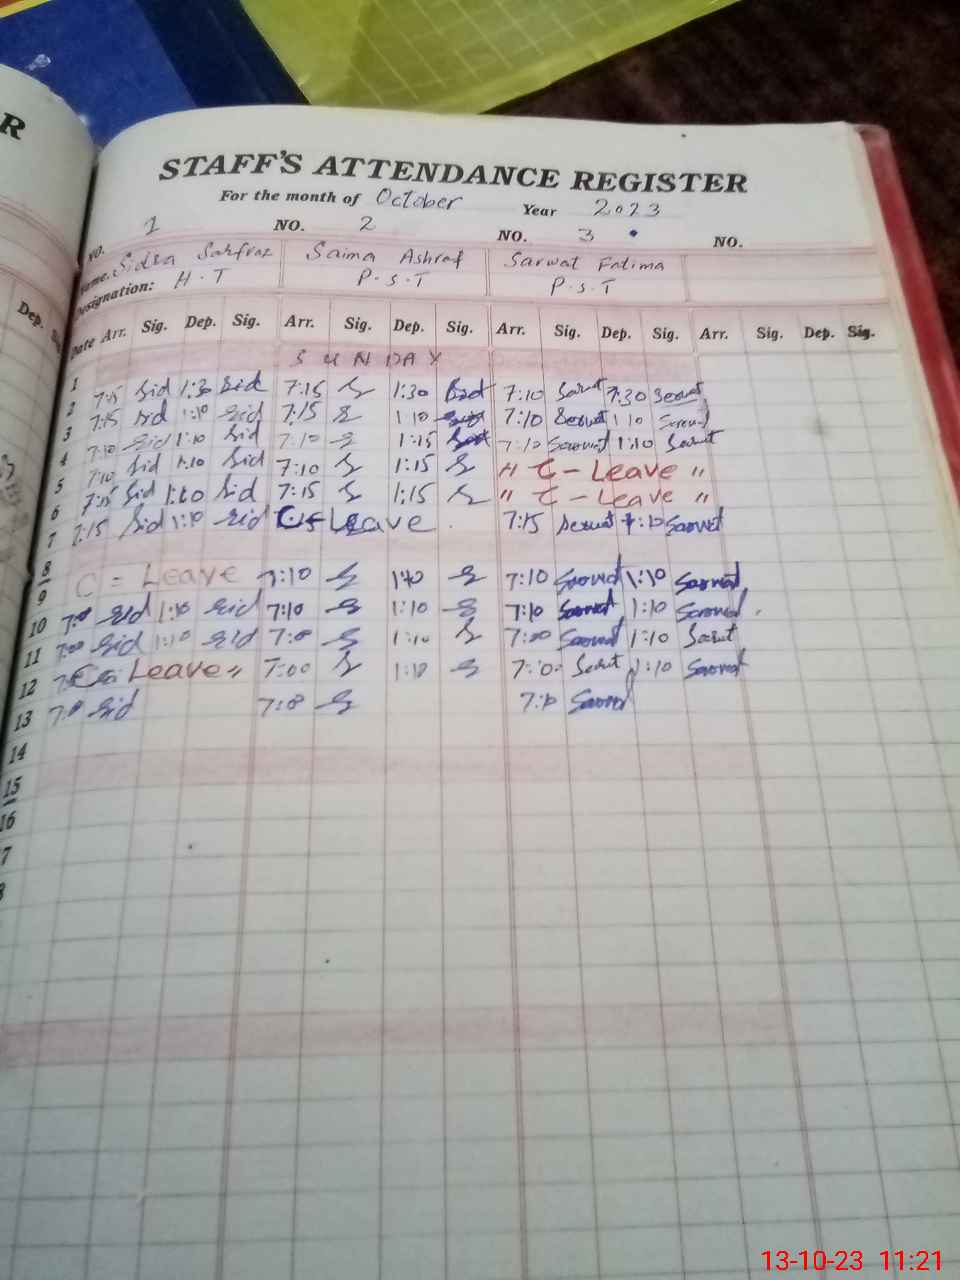 R
STAFF'S ATTENDANCE REGISTER
For the month of October Year 2023
NO. 1 NO. 2 NO. 3 NO.
Name. Sidra Sarfraz Saima Ashraf Sarwat Fatima
Designation: H.T P.S.T P.S.T
Dep.
Date Arr. Sig. Dep. Sig. Arr. Sig. Dep. Sig. Arr. Sig. Dep. Sig. Arr. Sig. Dep. Sig.
1 SUNDAY
2 7:15 Sid 1:30 Sid 7:15 S 1:30 7:10 Sarwat 1:30 Sarwat
3 7:15 Sid 1:10 Sid 7:15 S 1:10 7:10 Sarwat 1:10 Sarwat
4 7:10 Sid 1:10 Sid 7:10 S 1:15 7:10 Sarwat 1:10 Sarwat
5 7:10 Sid 1:10 Sid 7:10 S 1:15 S " C - Leave "
6 7:15 Sid 1:10 Sid 7:15 S 1:15 S " C - Leave "
7 7:15 Sid 1:10 Sid C - Leave 7:15 Sarwat 1:10 Sarwat
8
9 C = Leave 7:10 S 1:10 S 7:10 Sarwat 1:10 Sarwat
10 7:00 Sid 1:10 Sid 7:10 S 1:10 S 7:10 Sarwat 1:10 Sarwat
11 7:00 Sid 1:10 Sid 7:00 S 1:10 S 7:00 Sarwat 1:10 Sarwat
12 Leave " 7:00 S 1:10 S 7:10 Sarwat 1:10 Sarwat
13 7:00 Sid 7:00 S 7:10 Sarwat
14
15
16
7
13-10-23 11:21